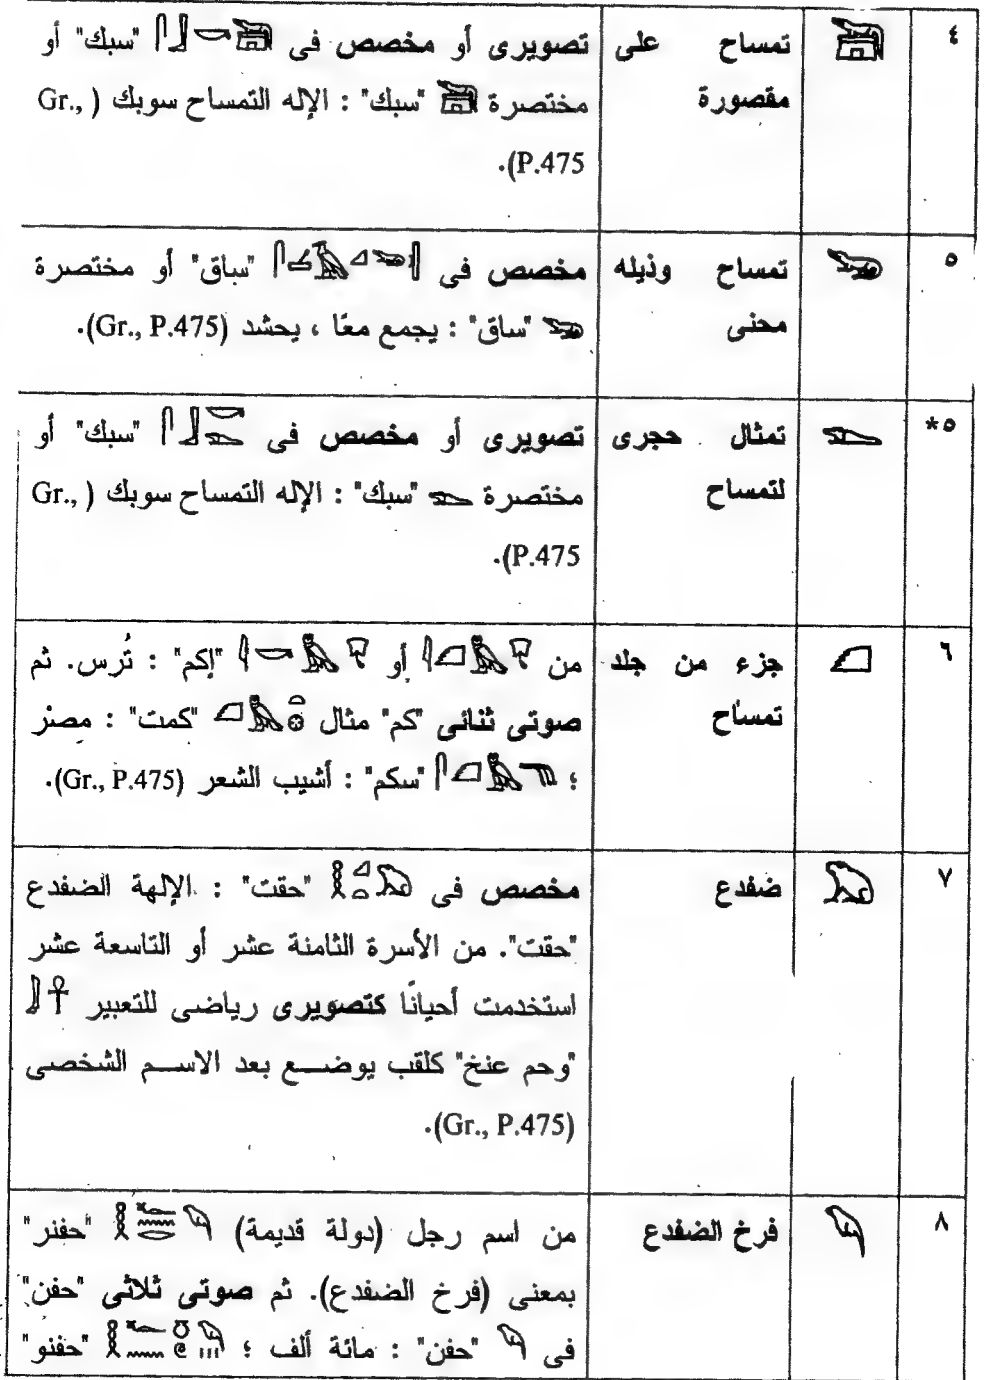 ٤ تمساح على تصويرى أو مخصص فى 𓋴𓃀𓎡𓆋 "سبك" أو
مقصورة مختصرة 𓆋 "سبك" : الإله التمساح سوبك ( Gr.,
P.475).
٥ تمساح وذيله مخصص فى "ساق" أو مختصرة
محنى 𓆌 "ساق" : يجمع معًا ، يحشد (Gr., P.475).
٥* تمثال حجرى تصويرى أو مخصص فى 𓋴𓃀𓎡𓆍 "سبك" أو
لتمساح مختصرة 𓆍 "سبك" : الإله التمساح سوبك ( Gr.,
P.475).
٦ جزء من جلد من 𓇋𓆎𓅓 أو 𓇋𓎡𓅓 "إكم" : تُرس. ثم
تمساح صوتى ثنائى "كم" مثال 𓆎𓅓𓏏𓊖 "كمت" : مصر
؛ 𓋴𓆎𓅓 "سكم" : أشيب الشعر (Gr., P.475).
٧ ضفدع مخصص فى 𓎛𓈎𓏏𓆏 "حقت" : الإلهة الضفدع
"حقت". من الأسرة الثامنة عشر أو التاسعة عشر
استخدمت أحيانًا كتصويرى رياضى للتعبير
"وحم عنخ" كلقب يوضع بعد الاسم الشخصى
(Gr., P.475).
٨ فرخ الضفدع من اسم رجل (دولة قديمة) 𓎛𓆑𓈖𓂋𓆐 "حفنر"
بمعنى (فرخ الضفدع). ثم صوتى ثلاثى "حفن"
فى 𓆐 "حفن" : مائة ألف ؛ "حفنو"